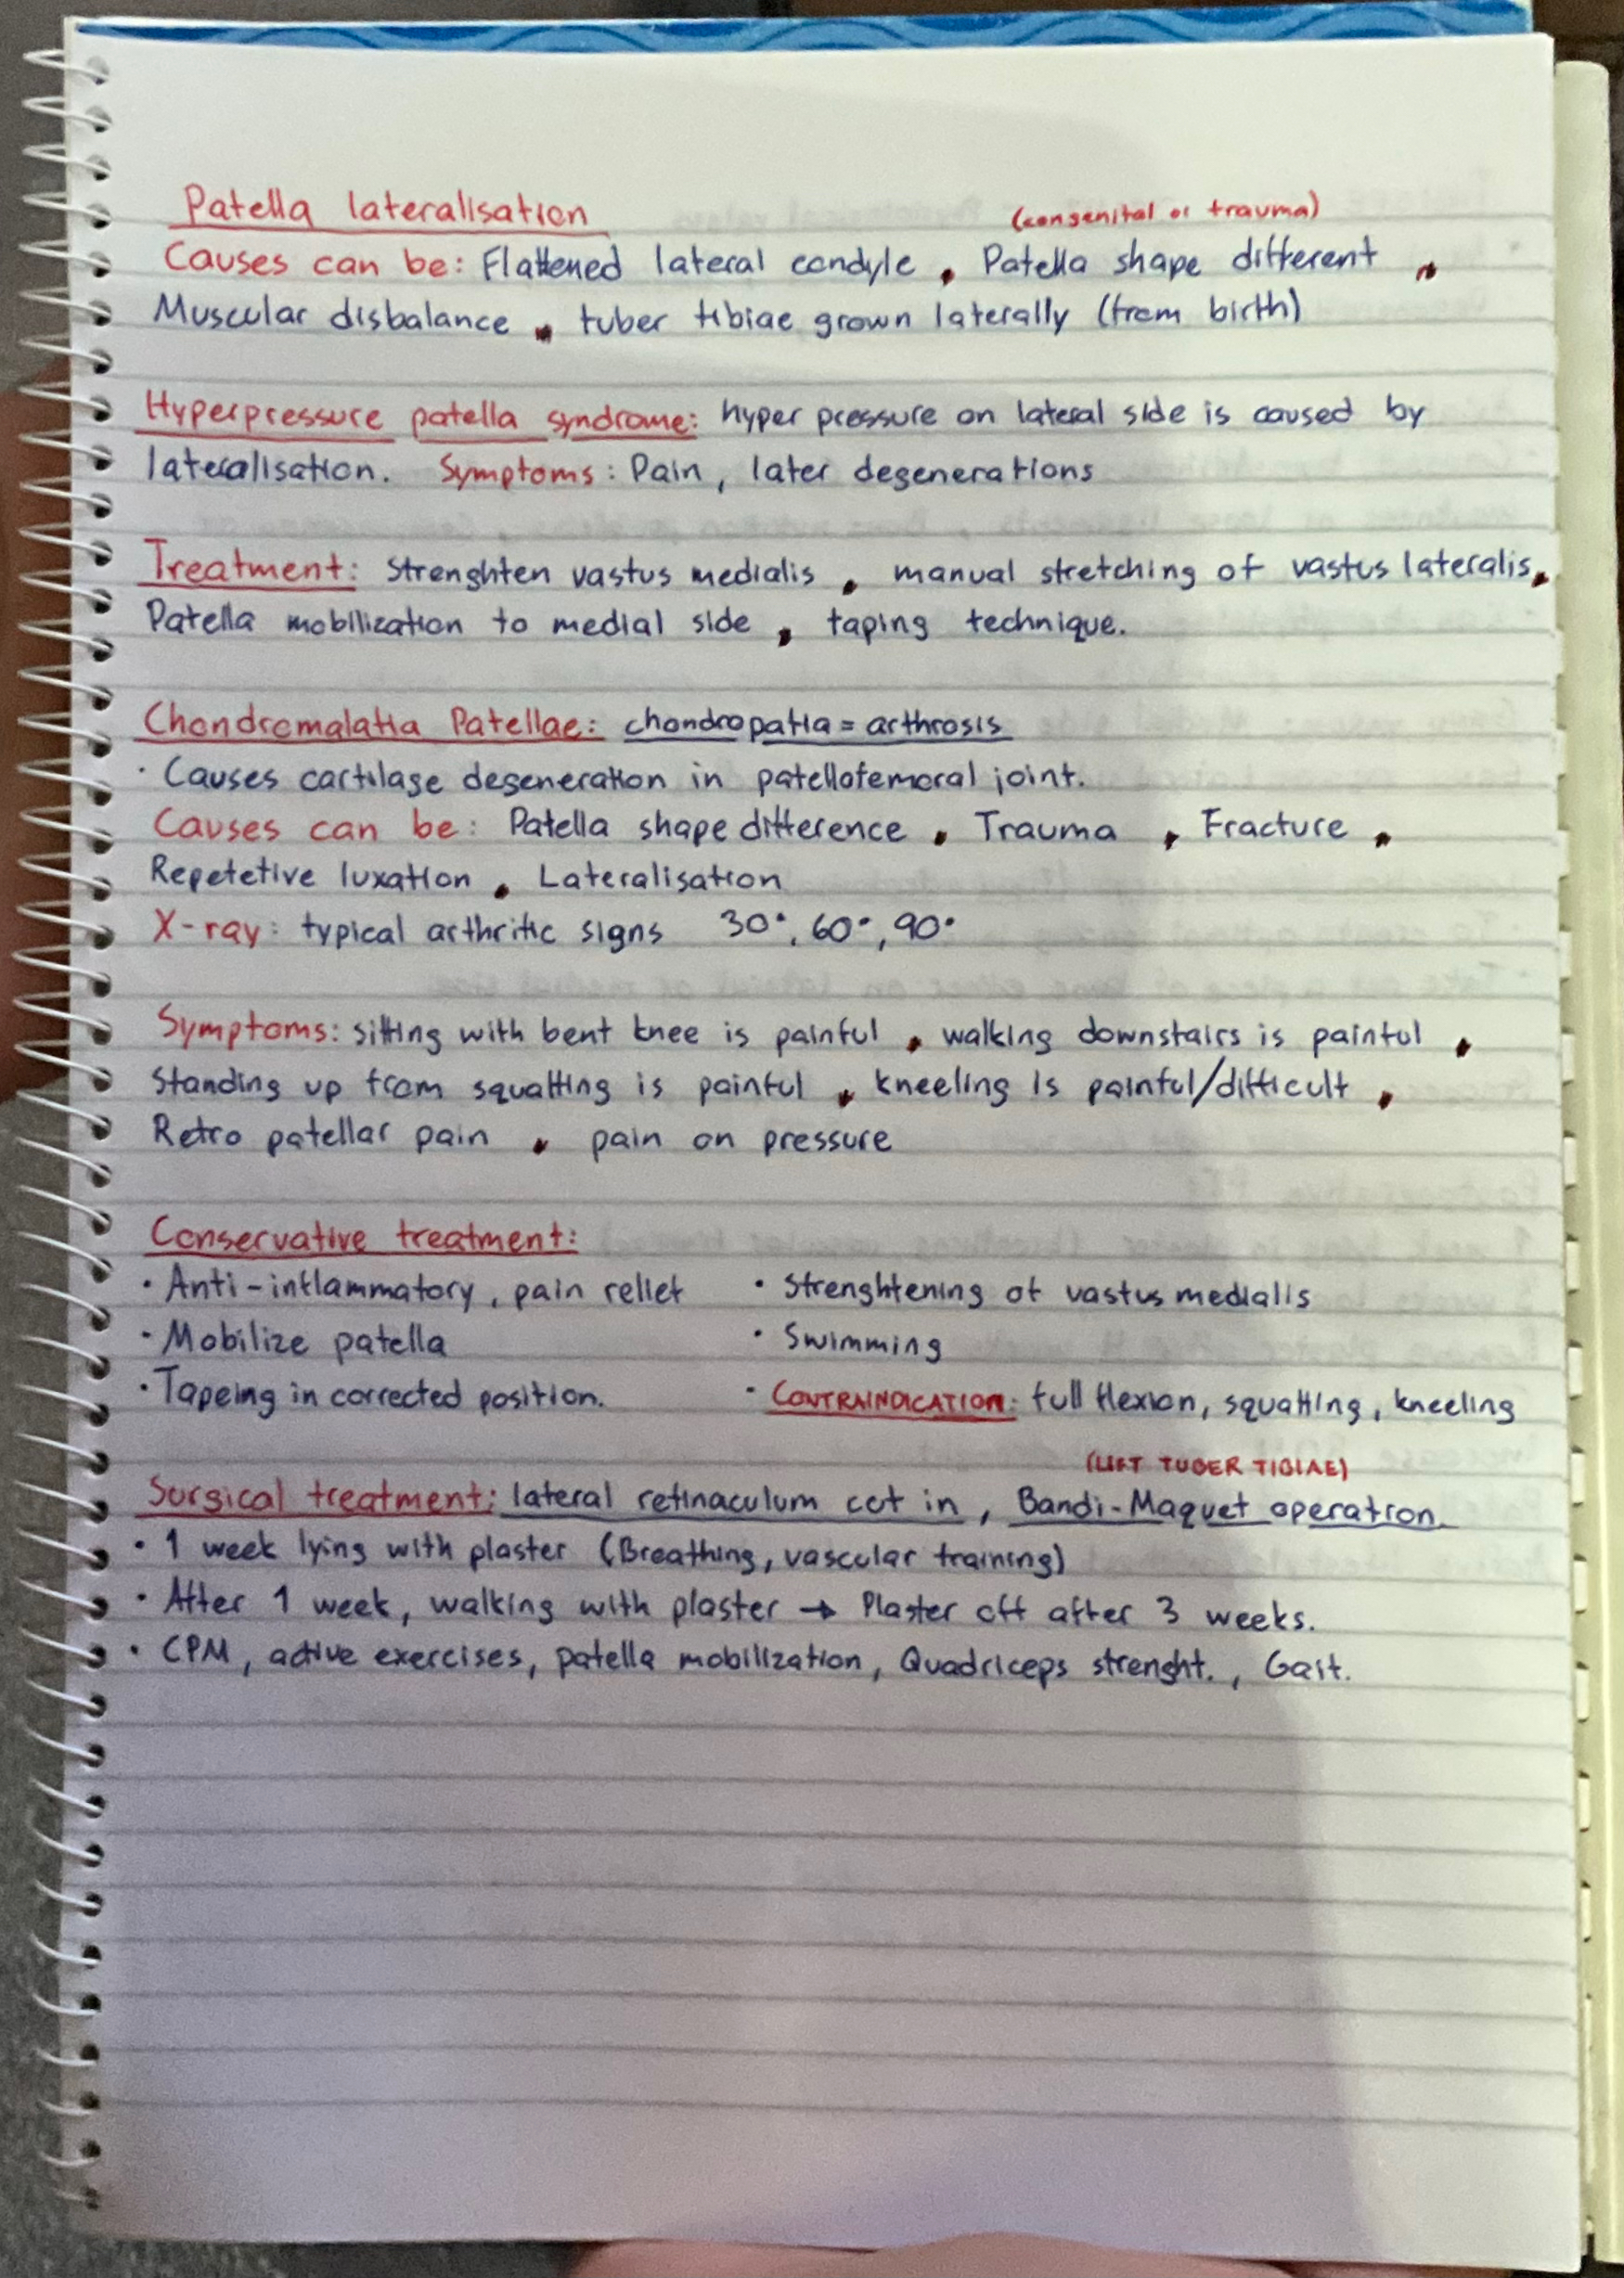 Patella lateralisation
(congenital or trauma)
Causes can be: Flattened lateral condyle . Patella shape different .
Muscular disbalance . tuber tibiae grown laterally (from birth)
Hyperpressure patella syndrome: hyper pressure on lateral side is caused by
lateralisation. Symptoms: Pain, later degenerations
Treatment: Strenghten vastus medialis . manual stretching of vastus lateralis.
Patella mobilization to medial side . taping technique.
Chondromalatia Patellae: chondropatia = arthrosis
· Causes cartilage degeneration in patellofemoral joint.
Causes can be: Patella shape difference . Trauma . Fracture .
Repetetive luxation . Lateralisation
X-ray: typical arthritic signs 30°, 60°, 90°
Symptoms: sitting with bent knee is painful . walking downstairs is painful .
Standing up from squatting is painful . kneeling is painful/difficult .
Retro patellar pain . pain on pressure
Conservative treatment:
· Anti-inflammatory, pain relief · Strenghtening of vastus medialis
· Mobilize patella · Swimming
· Tapeing in corrected position. · CONTRAINDICATION: full flexion, squatting, kneeling
(LIFT TUBER TIBIAE)
Surgical treatment: lateral retinaculum cut in, Bandi-Maquet operation.
· 1 week lying with plaster (Breathing, vascular training)
· After 1 week, walking with plaster → Plaster off after 3 weeks.
· CPM, active exercises, patella mobilization, Quadriceps strenght., Gait.